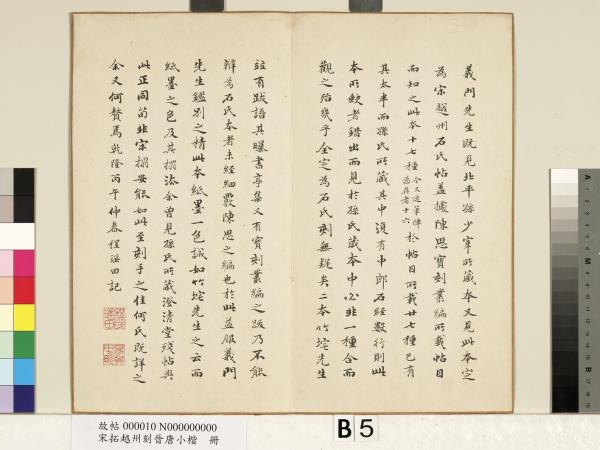 義門先生既見北平孫少宰所藏本又見此本定
為宋越州石氏帖蓋據陳思寶刻叢編所載帖目
而知之此本十七種今又逸筆陣
圖存者十六於帖目所載廿七種已有
其太半而孫氏所藏其中復有中郎石經數行則此
本所缺者錯出而見於孫氏藏本中必非一種合而
觀之殆幾乎全定為石氏刻無疑矣二本竹垞先生
竝有跋語其曝書亭集又有寶刻叢編之跋乃不能
辯為石氏本者未經細覈陳思之編也於此益服義門
先生鑑別之精此本紙墨一色誠如竹垞先生之云而
紙墨之色及其搨法余曾見孫氏所藏澄清堂殘帖與
此正同苟非宋搨安能如此至刻手之佳何氏既詳之
余又何贅焉乾隆丙午仲春程瑤田記
故帖 000010 N000000000
宋拓越州刻晉唐小楷 冊
B 5
A
M
B